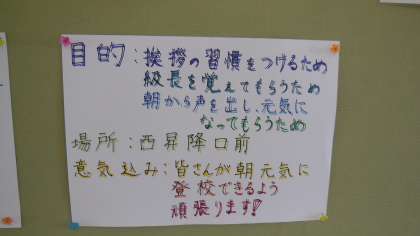 目的:挨拶の習慣をつけるため
級長を覚えてもらうため
朝から声を出し、元気に
なってもらうため
場所:西昇降口前
意気込み:皆さんが朝元気に
登校できるよう
頑張ります!